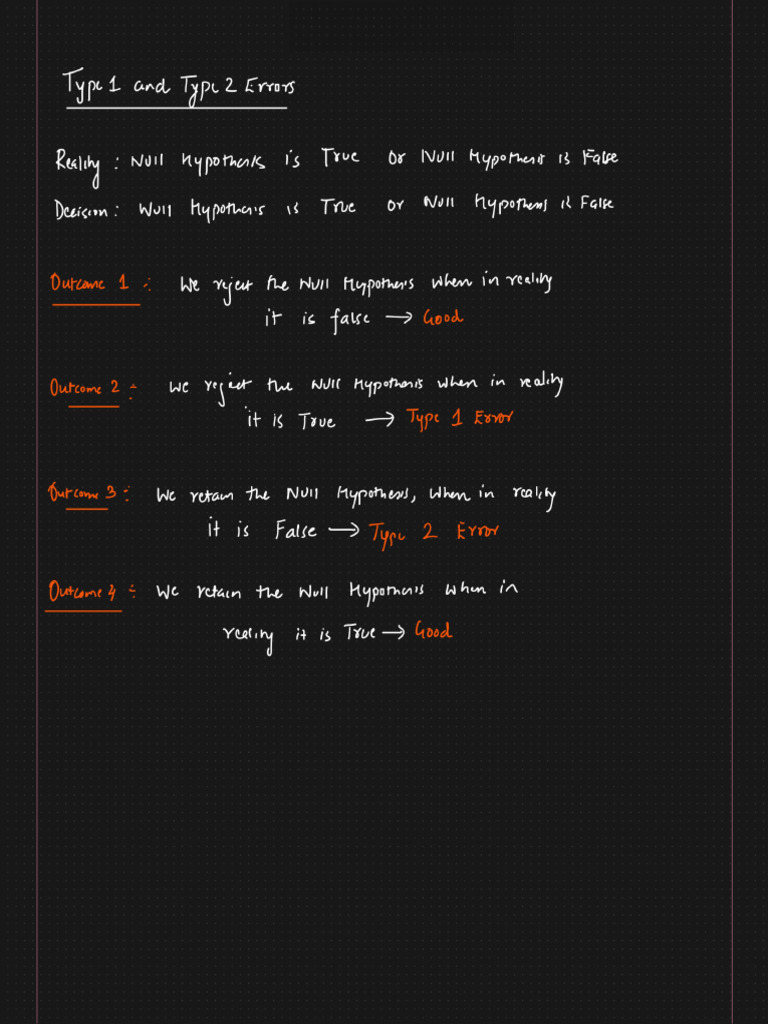 Type 1 and Type 2 Errors
Reality : Null Hypothesis is True or Null Hypothesis is False
Decision : Null Hypothesis is True or Null Hypothesis is False
Outcome 1 :- We reject the Null Hypothesis when in reality
it is false → Good
Outcome 2 :- We reject the Null Hypothesis when in reality
it is True → Type 1 Error
Outcome 3 :- We retain the Null Hypothesis, when in reality
it is False → Type 2 Error
Outcome 4 :- We retain the Null Hypothesis when in
reality it is True → Good